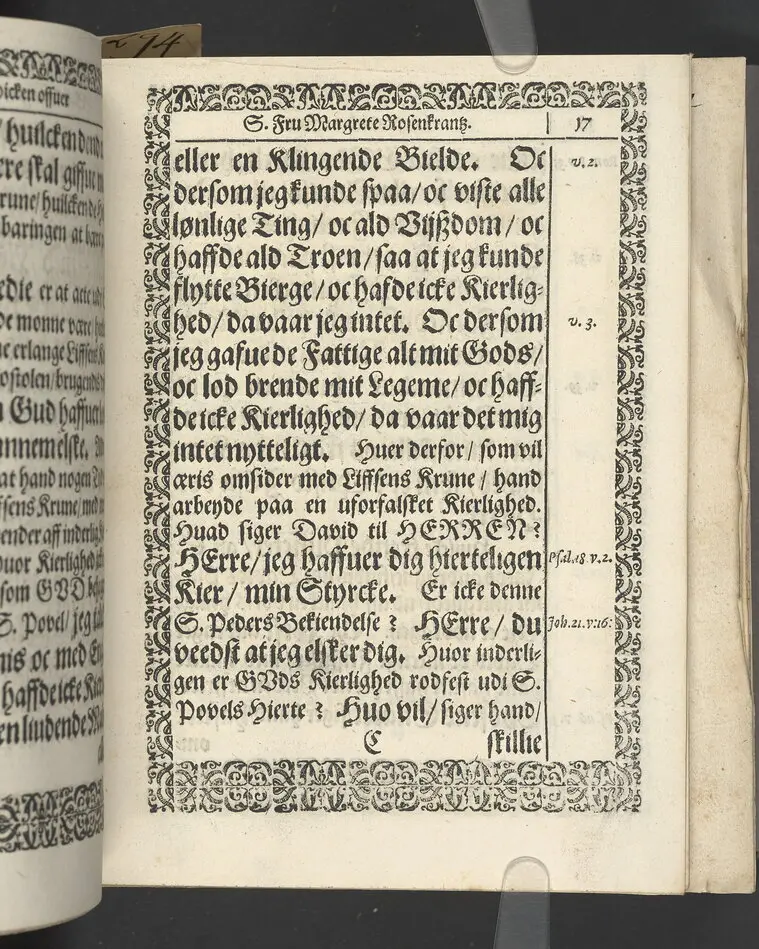 274
icken offuer
huilcken dend
re skal giffue
rune/ huilcken de
baringen at
edie er at
de monne være
e erlange Liffsens
ostolen/ brugende
Gud haffuer
nnem elske.
at hand nogen
fsens Krune/ med
ender aff inderlig
uor Kierlighed
som GVD
S. Povel/ jeg
nis oc med
haffde icke
en liudende
S. Fru Margrete Rosenkrantz. 17
eller en Klingende Bielde. Oc v. 2.
dersom jeg kunde spaa/ oc viste alle
lønlige Ting/ oc ald Vijßdom/ oc
haffde ald Troen/ saa at jeg kunde
flytte Bierge/ oc hafde icke Kierlig-
hed/ da vaar jeg intet. Oc dersom v. 3.
jeg gafue de Fattige alt mit Gods/
oc lod brende mit Legeme/ oc haff-
de icke Kierlighed/ da vaar det mig
intet nytteligt. Huer derfor/ som vil
æris omsider med Liffsens Krune/ hand
arbeyde paa en uforfalsket Kierlighed.
Huad siger David til HERREN?
HErre/ jeg haffuer dig hierteligen Psal. 18. v. 2.
Kier/ min Styrcke. Er icke denne
S. Peders Bekiendelse? HErre/ du Joh. 21. v: 16:
veedst at jeg elsker dig. Huor inderli-
gen er GVds Kierlighed rodfest udi S.
Povels Hierte? Huo vil/ siger hand/
C skillie